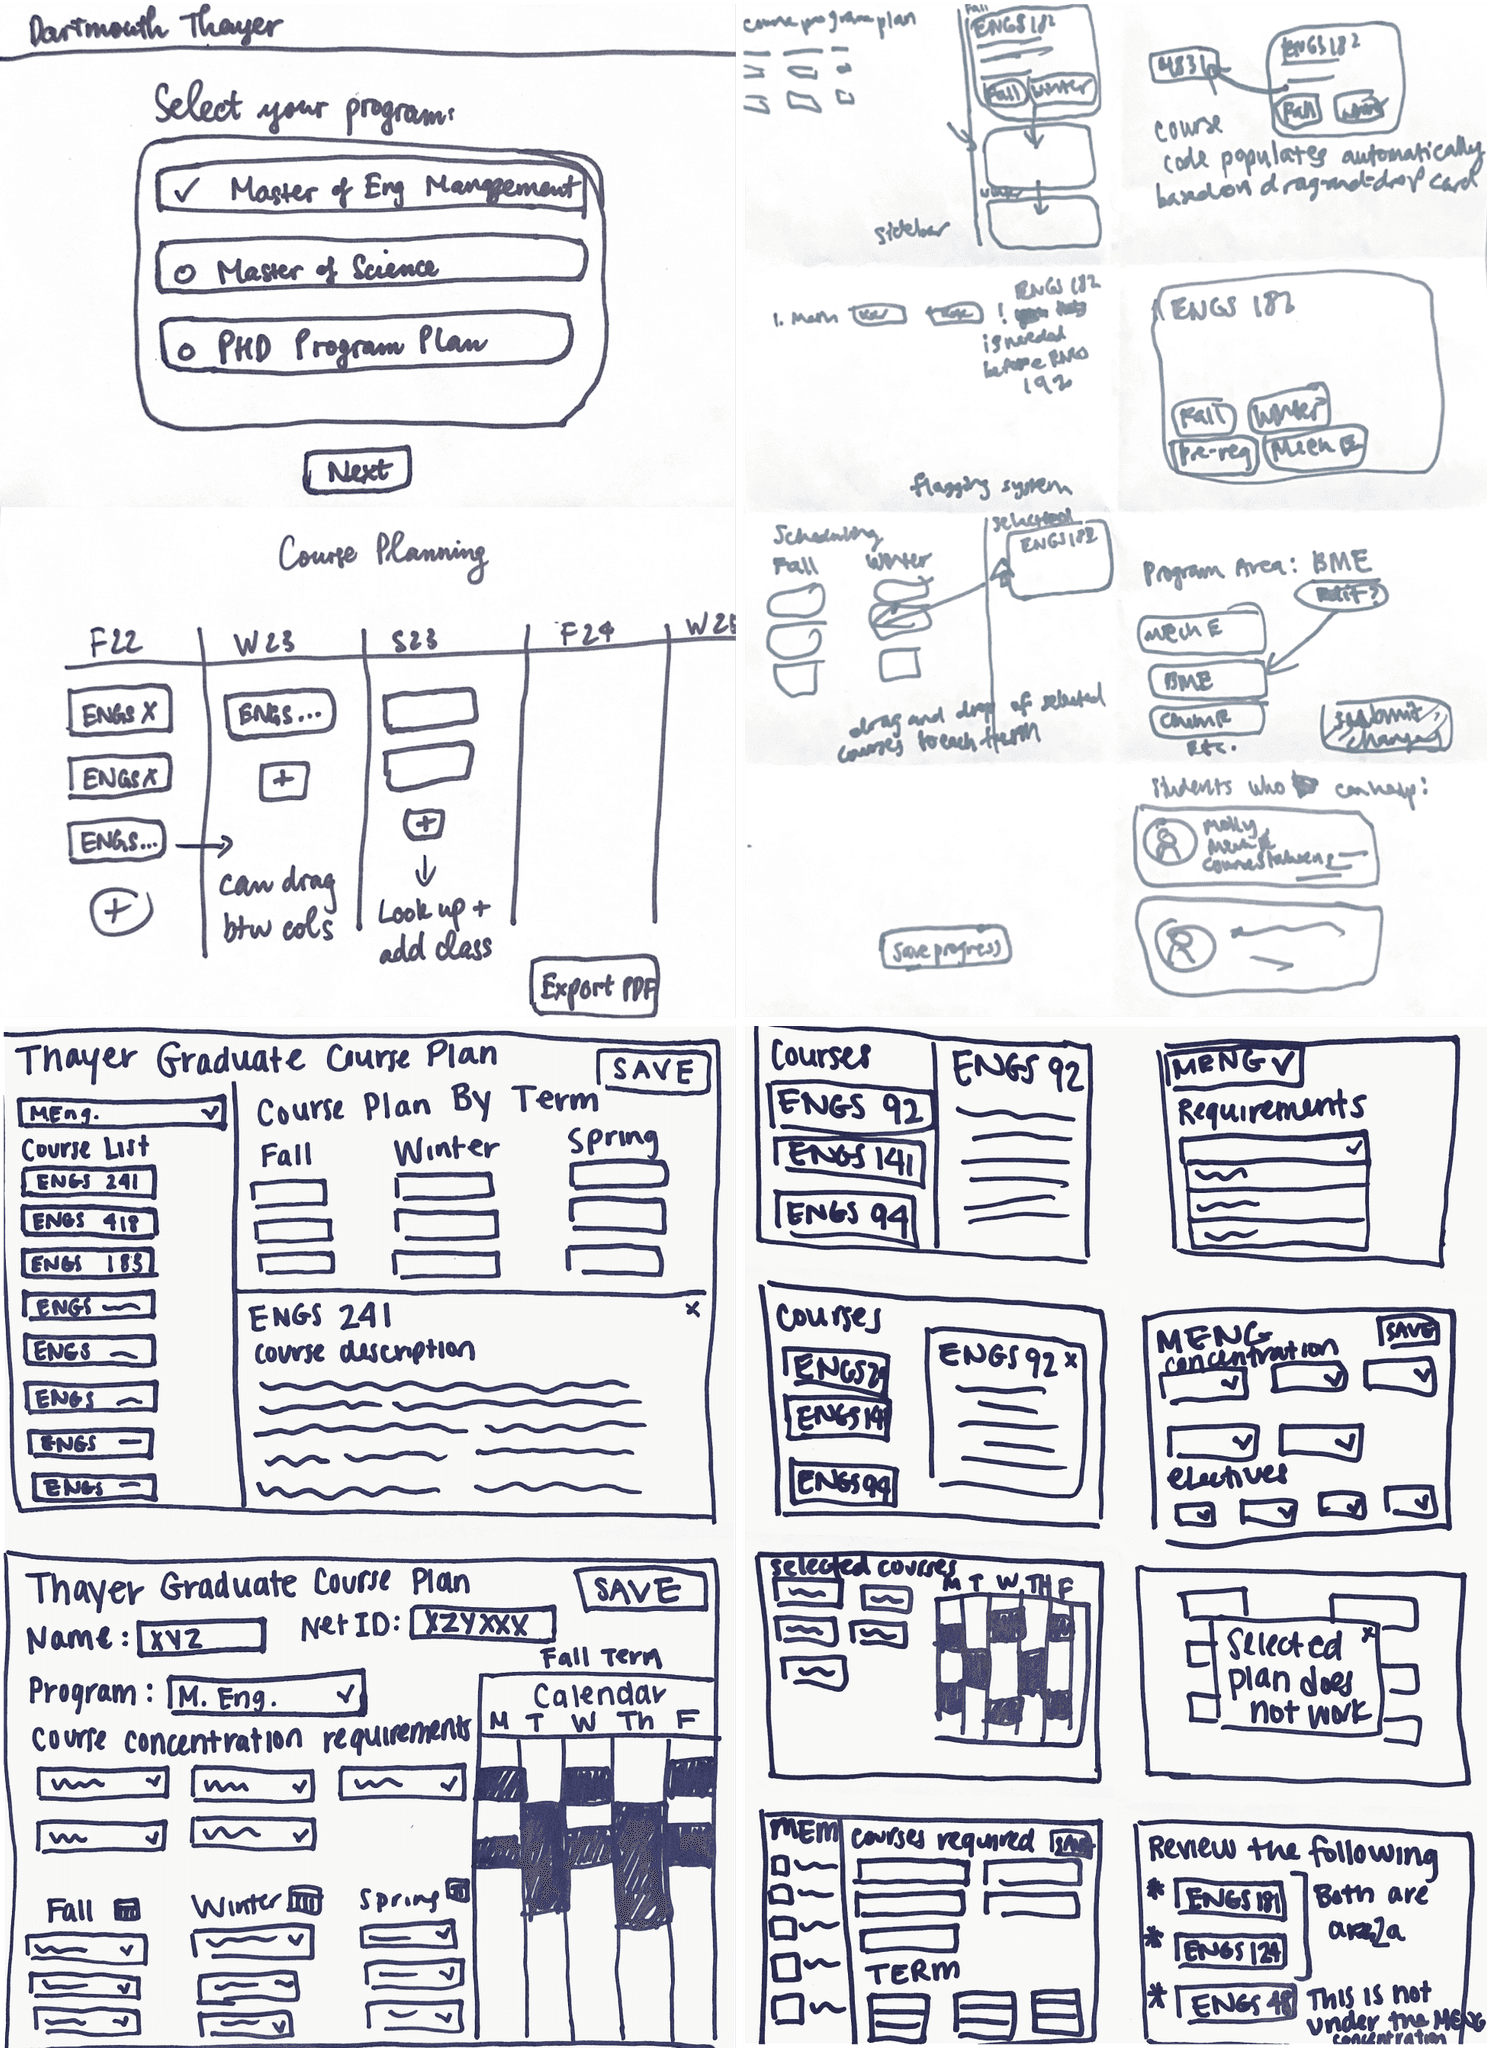 Dartmouth Thayer
Select your program:
✓ Master of Eng Management
Master of Science
PHD Program Plan
Next
Course Planning
F22
W23
S23
F24
ENGS X
ENGS X
ENGS...
+
ENGS...
+
can drag
btw cols
+
Look up +
add class
Export PDF
course program plan
Fall
ENGS 182
Fall
Winter
sidebar
ENGS 182
Fall
course
code populates automatically
based on drag-and-drop card
ENGS 182
!
is needed
before ENGS
192
flagging system
ENGS 182
Fall
Winter
Pre-req
Mech E
Scheduling
Fall
Winter
selected
ENGS 182
drag and drop of selected
courses to each term
Save progress
Program Area: BME
Edit?
Mech E
BME
etc.
submit
changes
Students who can help:
Molly
Mech E
Courses taken:
Thayer Graduate Course Plan
SAVE
MEng.
Course List
ENGS 241
ENGS 418
ENGS 183
ENGS
ENGS
ENGS
ENGS
ENGS
Course Plan By Term
Fall
Winter
Spring
ENGS 241
x
course description
Courses
ENGS 92
ENGS 141
ENGS 94
ENGS 92
MENG
Requirements
Courses
ENGS 14
ENGS 94
ENGS 92 x
MENG
SAVE
concentration
electives
Thayer Graduate Course Plan
SAVE
Name: XYZ
Net ID: XZYXXX
Program: M. Eng.
Course concentration requirements
Fall
Winter
Spring
Fall Term
Calendar
M T W Th F
selected courses
M T W TH F
Selected x
plan does
not work
MEM
Courses required
SAVE
TERM
Review the following
* ENGS 181
* ENGS 124
Both are
area 2a
* ENGS 48
This is not
under the MENG
concentration